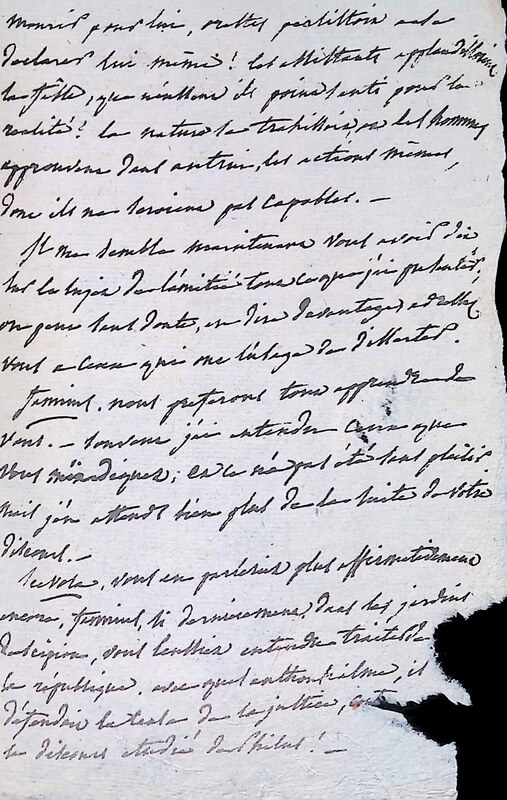 mourir pour lui, orestes persistoit a se
declarer lui même! les assistants applaudissoient
la fable, que n'eussent ils point senti pour la
realité? la nature se trahissoit, ou les hommes
approuvent dans autrui, les actions mêmes,
dont ils ne seroient pas capables. —
Il me semble maintenant vous avoir dit
sur le sujet de l'amitié tous ce que j'en
on peut sans doute, en dire davantage, adressez
vous a ceux qui ont l'usage de disserter.
fannius, nous preferons tous apprendre de
vous. — souvent j'ai entendu ceux que
vous m'indiquez; et ce n'a pas été sans plaisir
mais j'en attends bien plus de la suite de votre
discours. —
Scevola, vous en parleriez plus affirmativement
encore, fannius, si dernierement dans les jardins
de scipion, vous l'eussiez entendu traiter de
la république. avec quel enthousiasme, il
défendit la cause de la justice,
le discours etudié de Philus! —